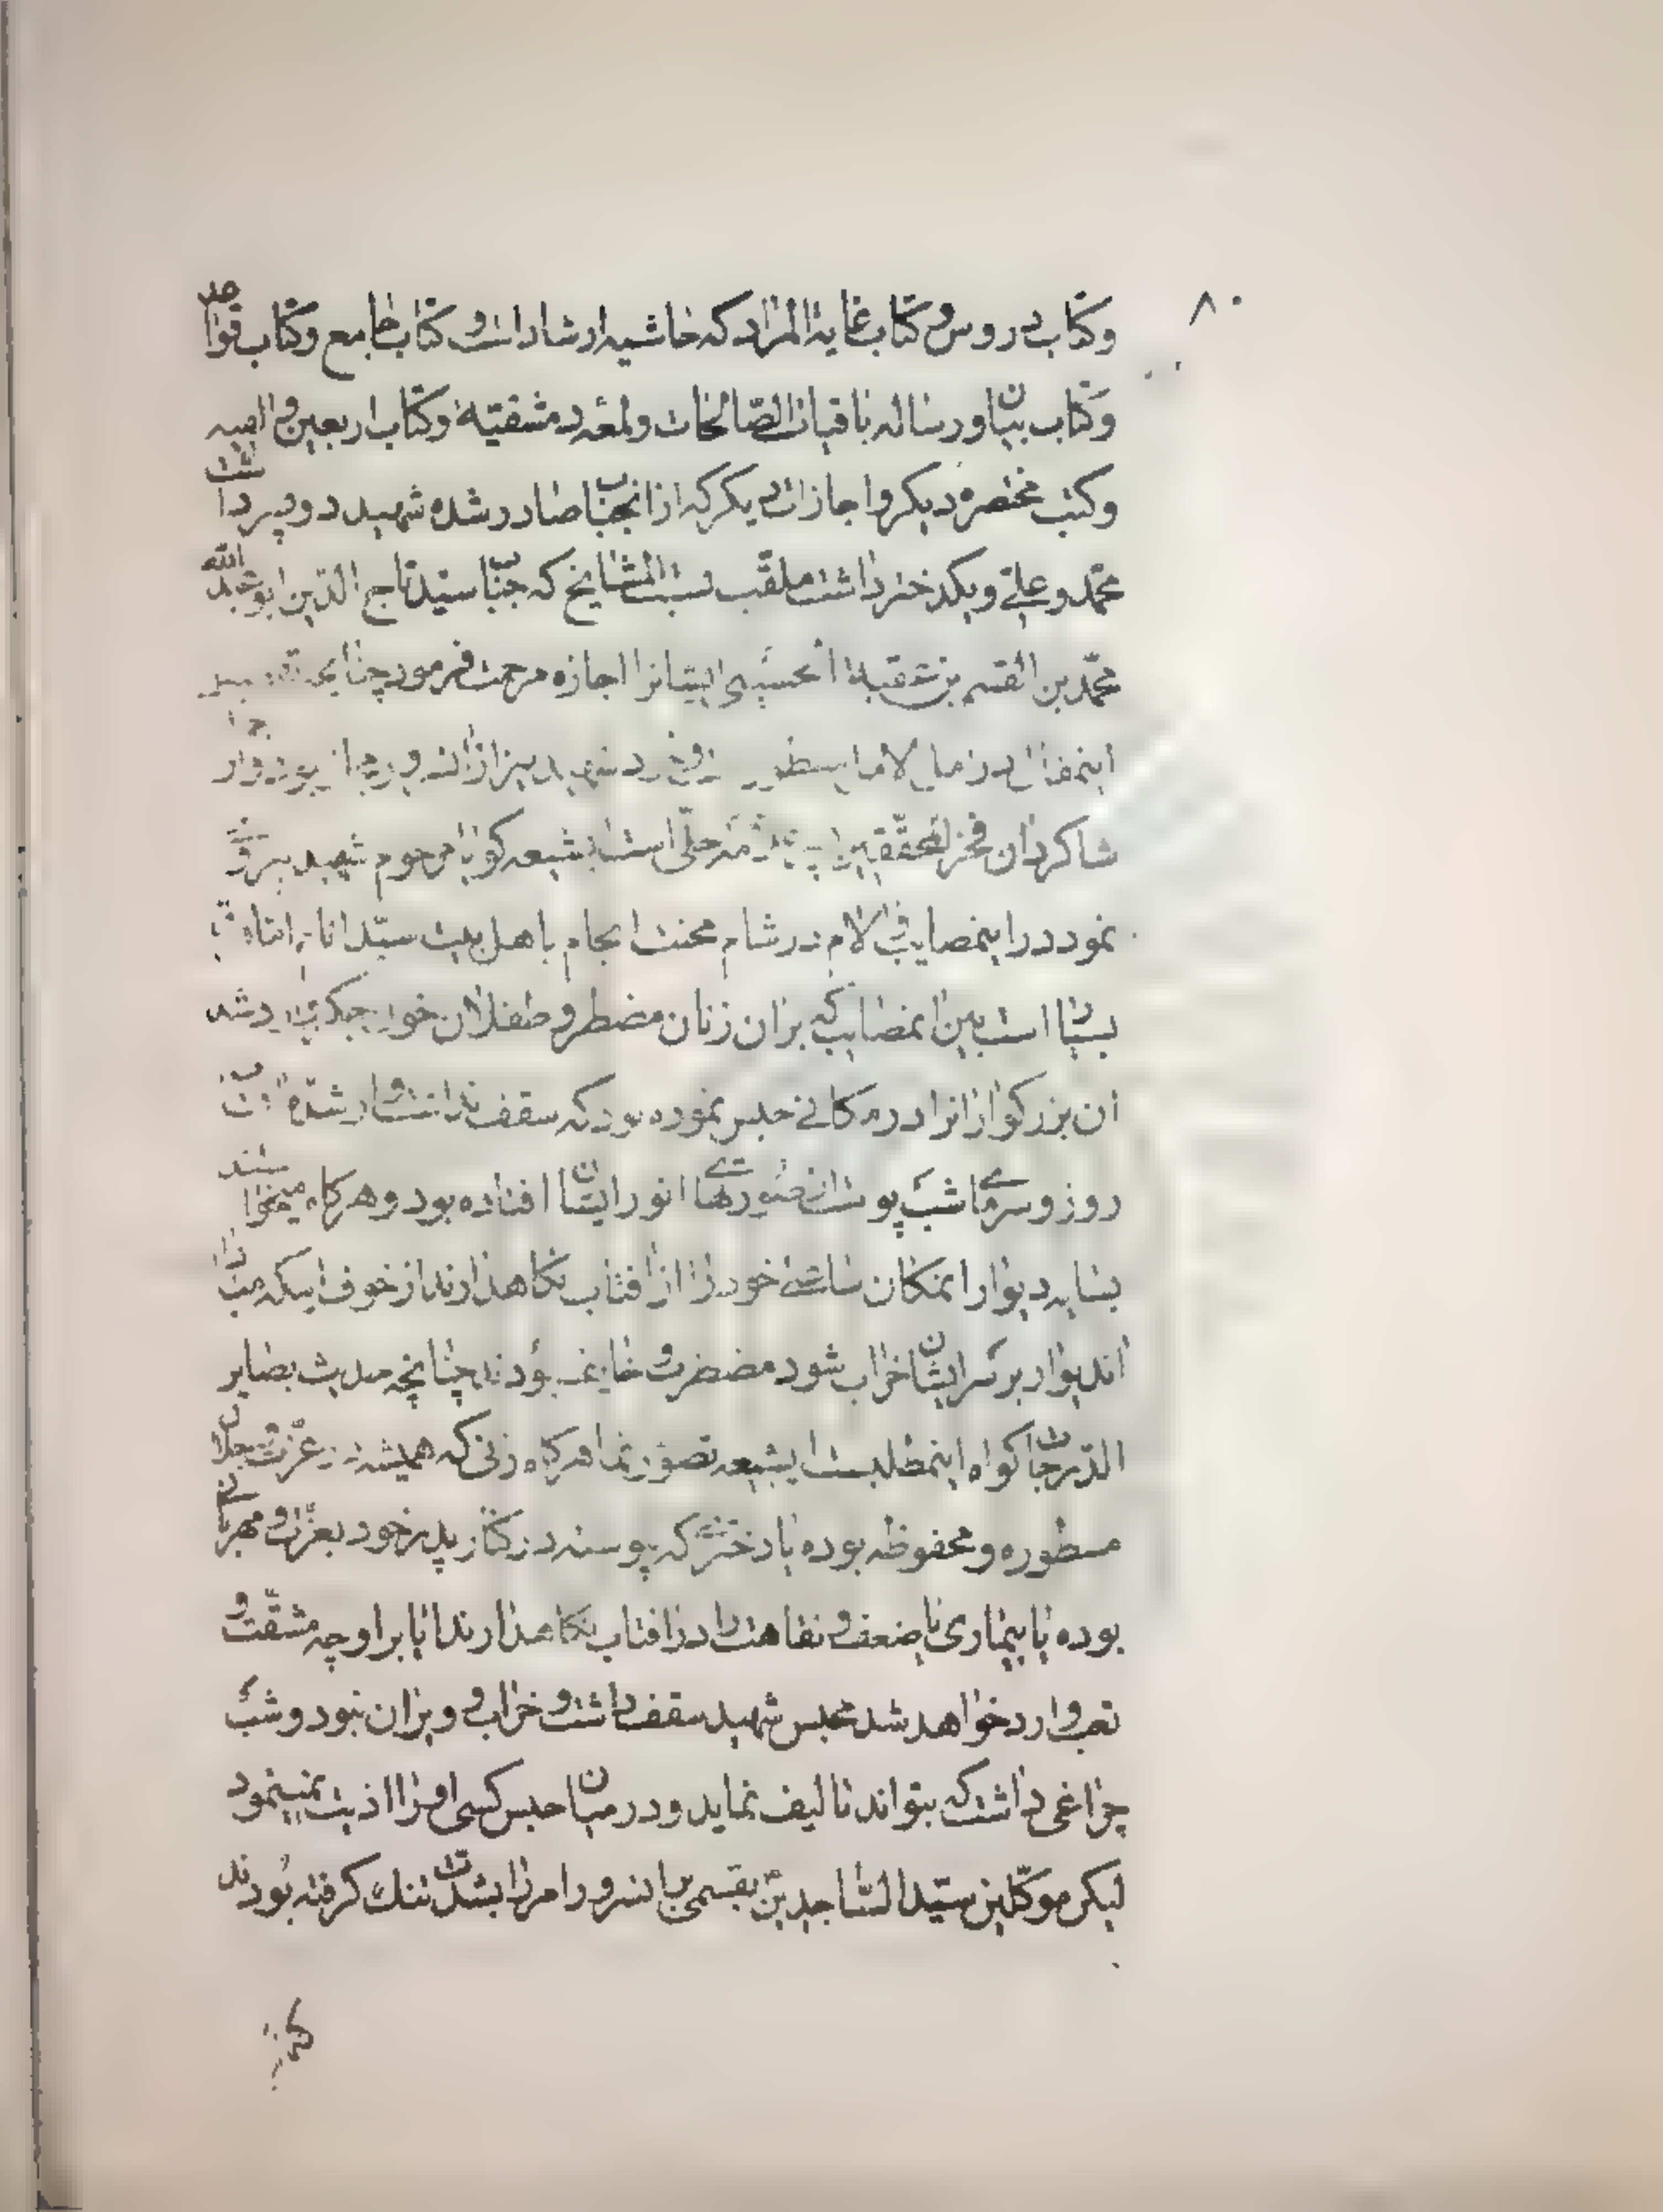 ۸۰
وکتاب دروس و کتاب غایة المراد که حاشیه ارشاد است و کتاب جامع وکتاب قواعد
وکتاب بیان و رساله باقیات الصّالحات ولمعه دمشقیّة وکتاب اربعین و الفیه
وکتب مختصره دیکر و اجازات دیکر که از انجناب صادر شده شهید دو پسر داشت
محمّد وعلی ویکدختر داشت ملقّب بست المشایخ که جناب سیّد تاج الدّین ابو عبد الله
محمّد بن القسم بن الحسینی ایشانرا اجازه مرحمت فرمود چنانچه
اینمقال در
شاکردان فخر المحقّقین حلّی است ایشیعه کویا مرحوم شهید پیروی
نمود در اینمصایب و الام در شام محنت انجام باهل بیت سیّد انام امّا
بسیار است بین انمصایب که بر ان زنان مضطر و طفلان خون جکر وارد شد
ان بزرکوارانرا در مکانی حبس نموده بود که سقف نداشت و از شدّة
روز و سرمای شب پوست از صورتهای انور ایشان افتاده بود و هرکاه میخواستند
بسایه دیوار انمکان ساعتی خود را از افتاب نکاهدارند از خوف اینکه مبادا
اندیوار بر سر ایشان خراب شود مضطرب و خایف بودند چنانچه حدیث بصایر
الدّرجات کواه اینمطلبست ایشیعه تصوّر نما هرکاه زنی که همیشه در عزّت و جلال
مسطوره و محفوظه بوده یا دختری که پیوسته در کنار پدر خود بعزّت و مهربانی
بوده یا بیماری با ضعف و نقاهت را در افتاب نکاهدارند ایا بر او چه مشقّت و
تعب وارد خواهد شد محبس شهید سقف داشت و خراب و ویران نبود و شب
چراغی داشت که بتواند تالیف نماید و در میان حبس کسی او را اذیت نمینمود
لیکن موکّلین سیّد السّاجدین بقسمی بر انسرور امر را بشدّت تنك کرفته بودند